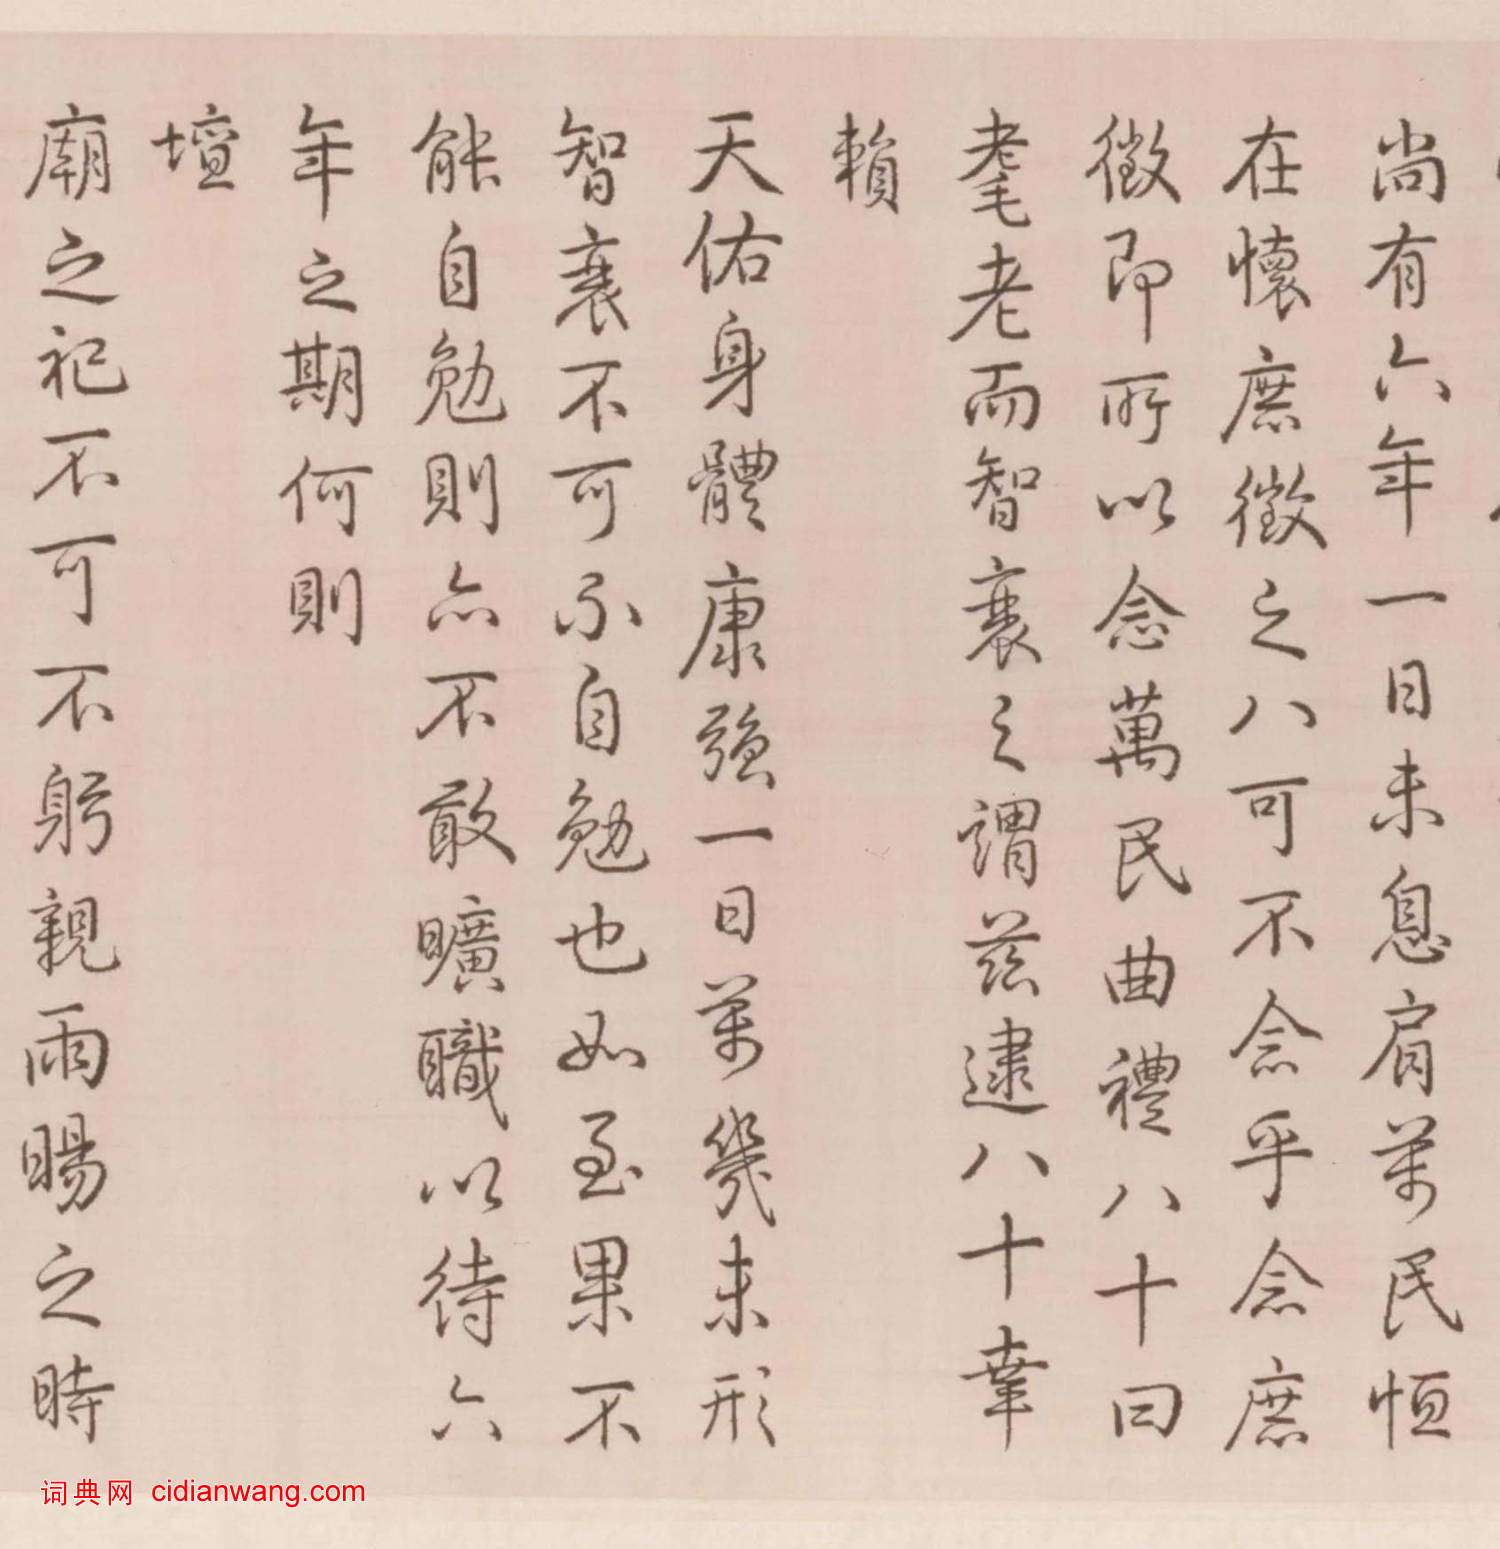 尚有六年一日未息肩万民恒
在懷庶徵之八可不念乎念庶
徵即所以念萬民曲禮八十曰
耄老而智衰之謂茲逮八十幸
賴
天佑身體康強一日万幾未形
智衰不可不自勉也如至果不
能自勉則亦不敢曠職以待六
年之期何則
壇
廟之祀不可不躬親雨暘之時
词典网 cidianwang.com